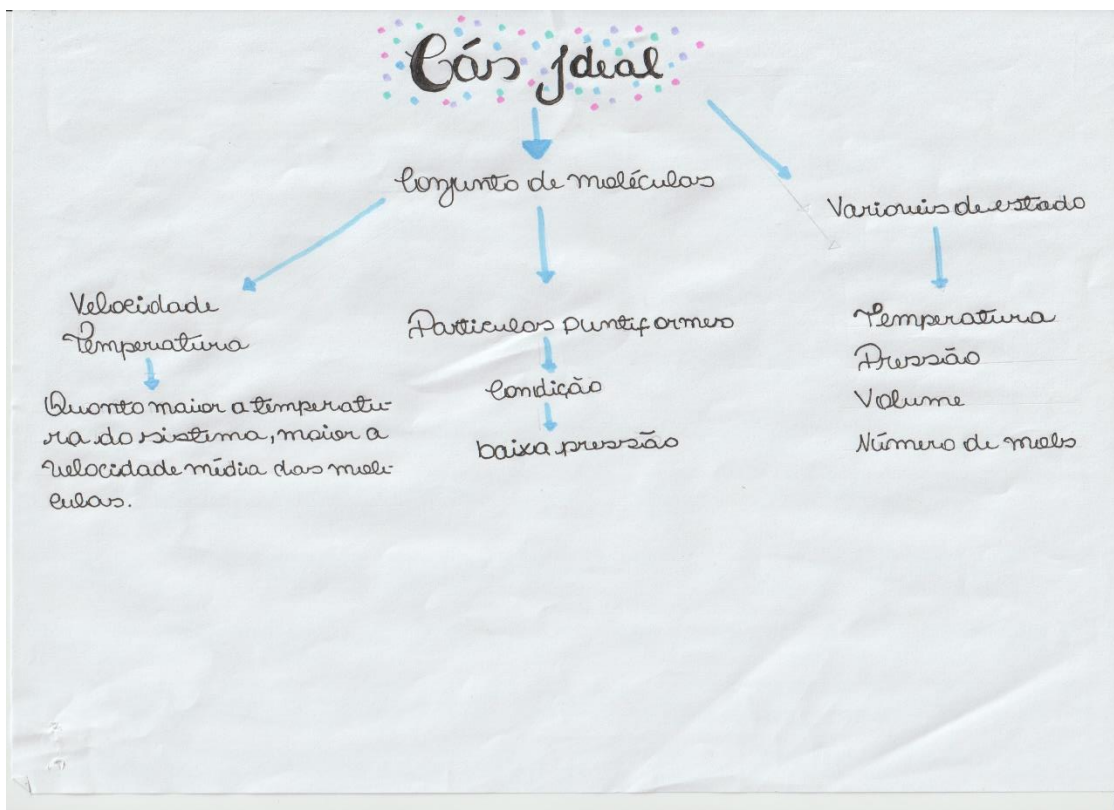 Gás Ideal
Conjunto de moléculas
Variaveis de estado
Velocidade
Temperatura
Quanto maior a temperatu-
ra do sistema, maior a
velocidade média das molé-
culas.
Particulas puntiformes
Condição
baixa pressão
Temperatura
Pressão
Volume
Número de mols